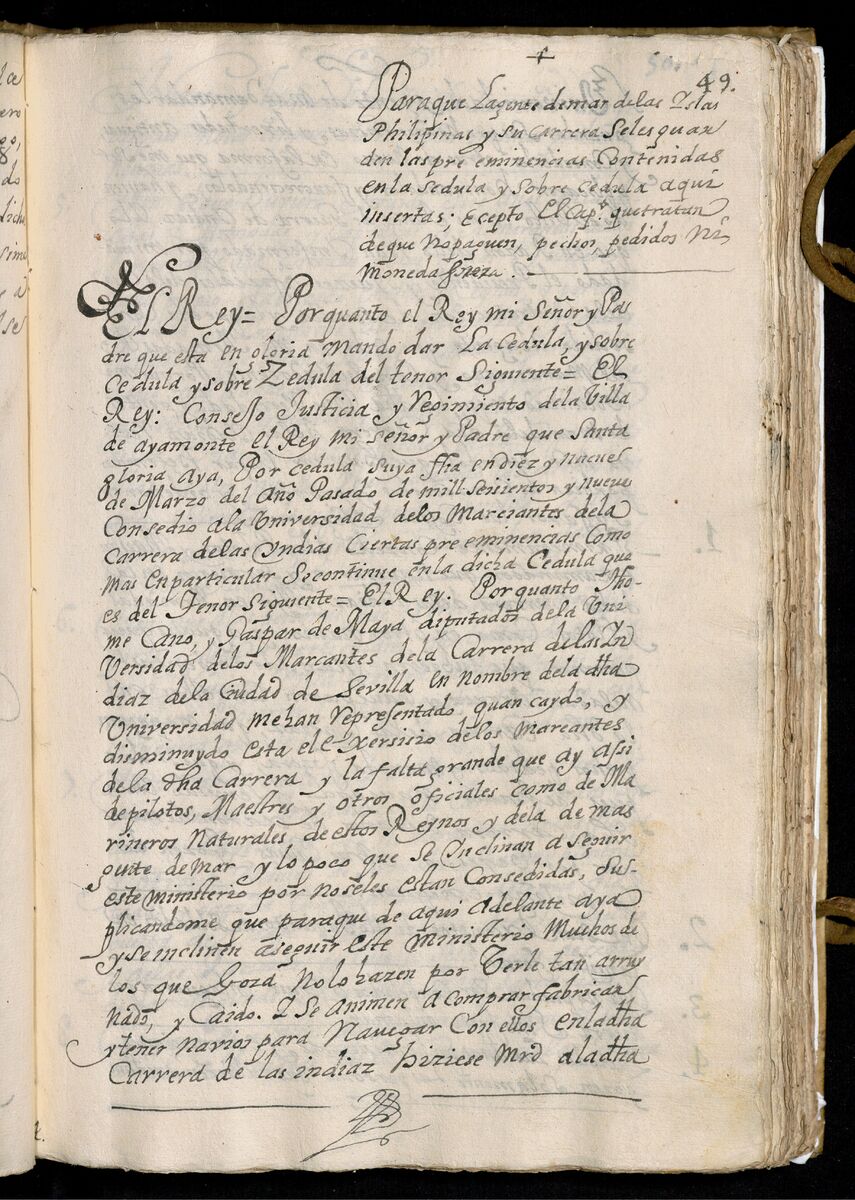 49.
Paraque Lagente demar delas Yslas
Philipinas y su Carrera Seles guar
den las pre eminencias Contenidas
enla sedula y sobre cedula aqui
insertas; Ecepto El Capº. quetratan
deque Nopaguen, pechos, pedidos Ni
moneda foreza.
El Rey= Porquanto el Rey mi Señor y Pa
dre que esta en gloria Mando dar La Cedula, y sobre
Cedula y sobre Zedula del tenor Siguiente= El
Rey: Consejo Justicia y Regimiento dela Villa
de ayamonte el Rey mi Señor y Padre que Santa
gloria aya, Por cedula suya fha endiez y nueue
de Marzo del Año Pasado de mill seisientos y nueue
Consedio ala Universidad delos Mareantes dela
Carrera delas Yndias Ciertas pre eminencias Como
mas enparticular Secontiene enla dicha Cedula que
es del Tenor Siguiente= El Rey. Porquanto Tho-
me Cano, y Gaspar de Maya diputados dela Uni
Versidad delos Marcantes dela Carrera delas Yn
diaz dela Ciudad de Sevilla en nombre dela dha
Universidad mehan Representado quan caydo, y
disminuydo esta el exersisio delos mareantes
dela dha Carrera y la falta grande que ay assi
depilotos, Maestres y otros oficiales como de Ma
rineros Naturales deestos Reynos y dela demas
gente demar y lo poco que se inclinan a seguir
este ministerio por noseles estan Consedidas, Sus-
plicandome que paraque de aqui adelante aya
y se inclinen aseguir este ministerio Muchos de
los que Nolo hazen por Verle tan arruy
nado, y Caido. Y Se animen a comprar fabricar
ytener navios para Navegar Con ellos enladha
Carrera de las indiaz hiziese mrd aladha